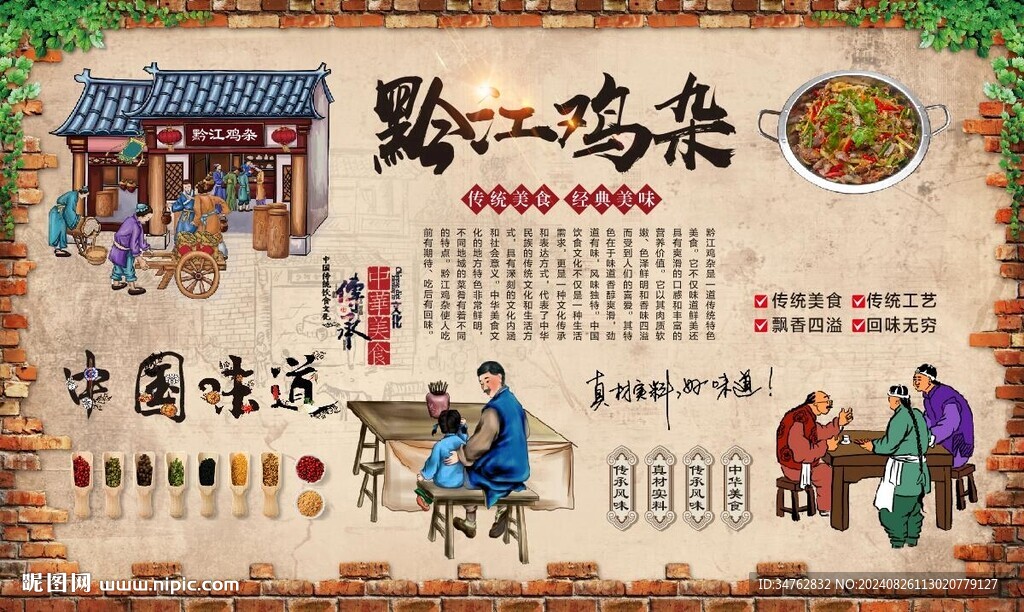 黔江鸡杂
黔江鸡杂
传统美食 经典美味
黔江鸡杂是一道传统特色
美食。它不仅味道鲜美还
具有爽滑的口感和丰富的
营养价值。它以其肉质软
嫩、色泽鲜明和香味四溢
而受到人们的喜爱。其特
色在于味道香醇爽滑，劲
道有味，风味独特。中国
饮食文化不仅是一种生活
需求，更是一种文化传承
和表达方式，代表了中华
民族的传统文化和生活方
式，具有深刻的文化内涵
和社会意义。中华美食文
化的地方特色非常鲜明，
不同地域的菜肴有着不同
的特点。黔江鸡杂使人吃
前有期待、吃后有回味。
传统美食 传统工艺
飘香四溢 回味无穷
中国传统饮食文化
传承
中華美食
文化
中国味道
真材实料,好味道!
传承风味
真材实料
传承风味
中华美食
昵图网 www.nipic.com
ID:34762832 NO:20240826113020779127